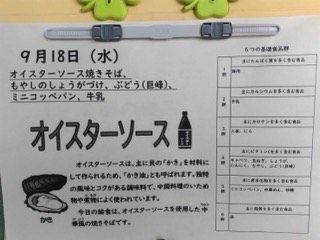 9月18日（水）
オイスターソース焼きそば、
もやしのしょうがづけ、ぶどう（巨峰）、
ミニコッペパン、牛乳
オイスターソース
オイスターソースは、主に貝の「かき」を材料に
して作られるため、「かき油」とも呼ばれます。独特
の風味とコクがある調味料で、中国料理のいため
物や煮物によく使われています。
今日の給食は、オイスターソースを使用した中
華風の焼きそばです。
かき
6つの基礎食品群
主にたんぱく質を多く含む食品
1群
豚肉
主にカルシウムを多く含む食品
2群
牛乳
主にカロテンを多く含む食品
3群
人参、にら
主にビタミンCを多く含む食品
4群
キャベツ、玉ねぎ、しょうが、
主に炭水化物を多く含む食品
5群
ミニコッペパン、中華めん、砂糖
主に脂質を多く含む食品
6群
油